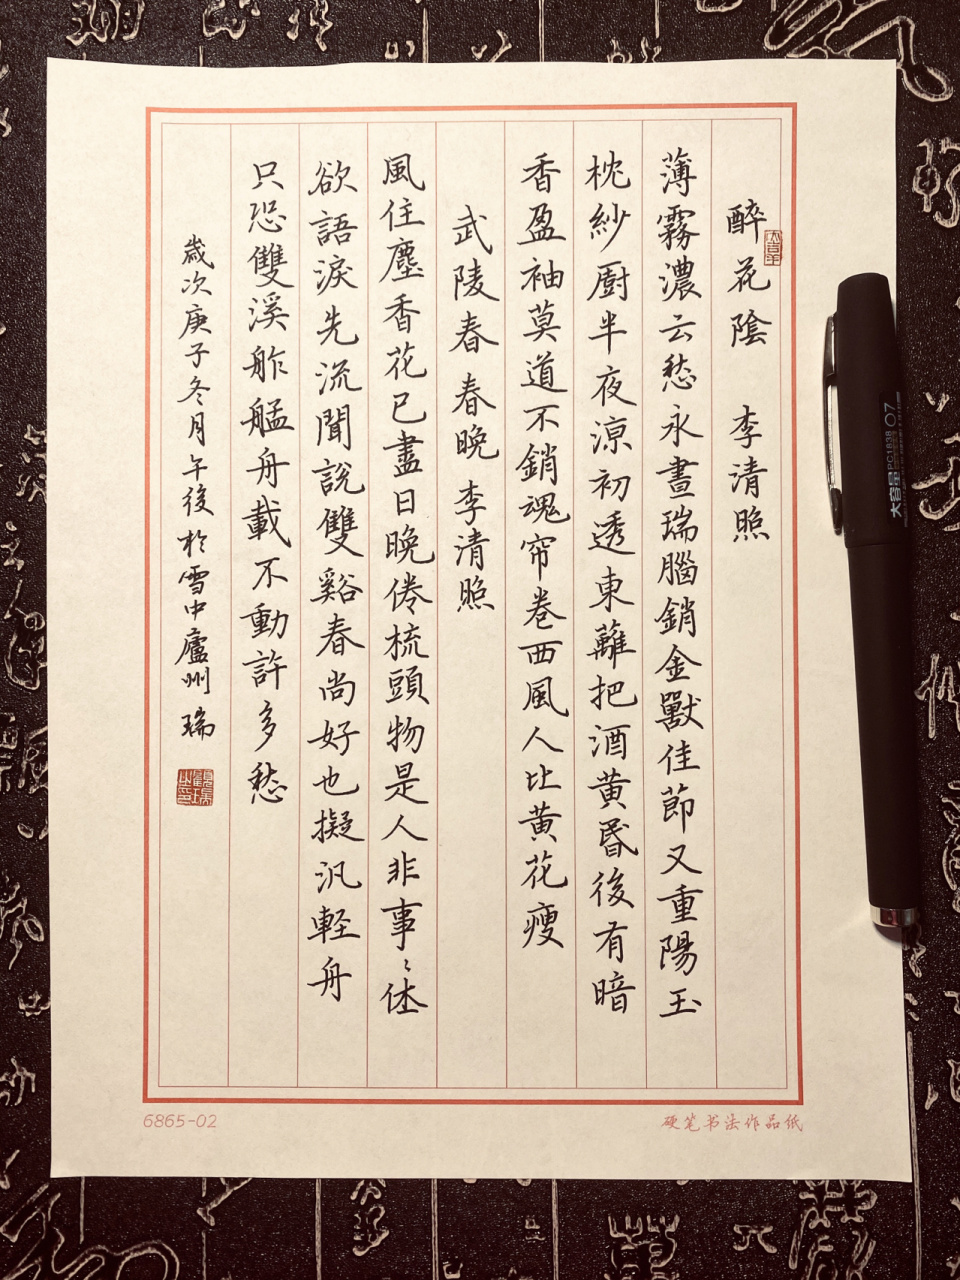 醉花陰 李清照
薄霧濃云愁永晝瑞腦銷金獸佳節又重陽玉
枕紗厨半夜涼初透東蘺把酒黄昏後有暗
香盈袖莫道不銷魂帘卷西風人比黄花瘦
武陵春 春晚 李清照
風住塵香花已盡日晚倦梳頭物是人非事〻休
欲語淚先流聞説雙谿春尚好也擬汎輕舟
只恐雙溪舴艋舟載不動許多愁
歲次庚子冬月午後於雪中廬州 瑞
6865-02
硬笔书法作品纸
大容量 PC1838 07